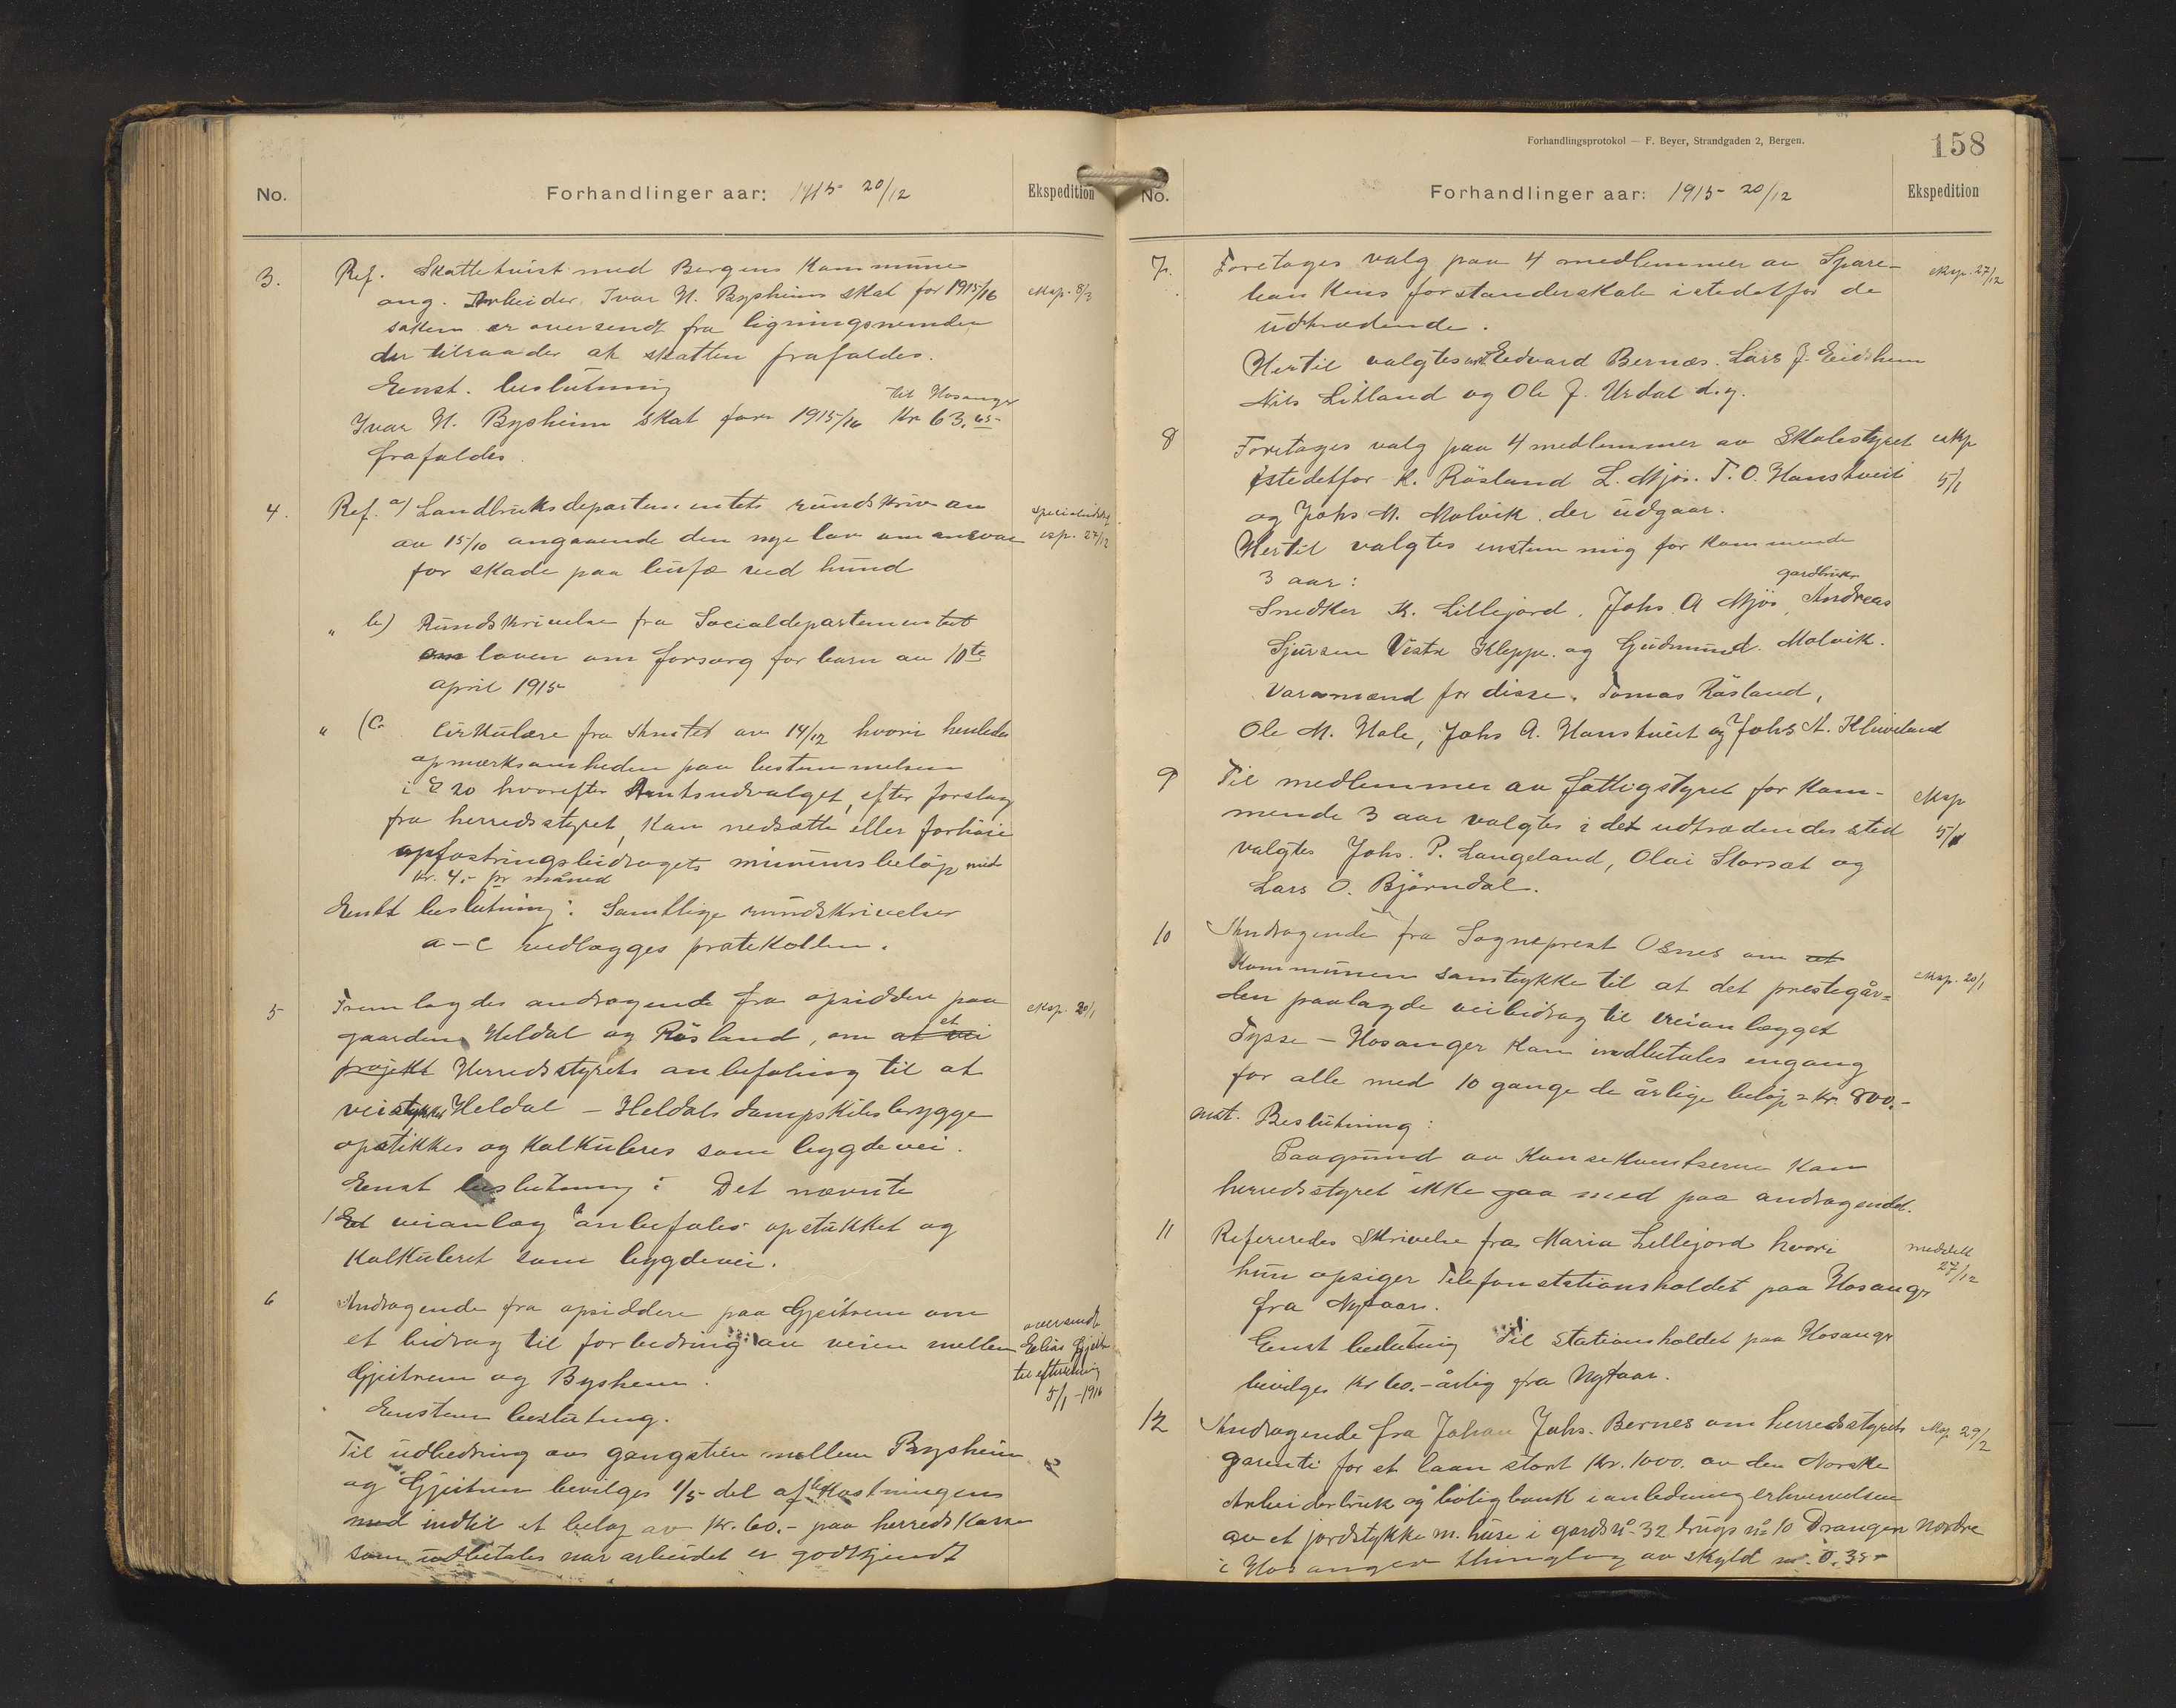 No. Forhandlinger aar: 1915 20/12 Ekspedition
3. Ref. Skattetvist med Bergens Kommune
ang. Arbeider Ivar N. Bysheims skat for 1915/16 eksp. 8/3
saken er oversendt fra ligningsnemden
der tilraader at skatten frafaldes.
Enst. beslutning
til Hosanger
Ivar N. Bysheim skat for 1915/16 Kr 63.65
frafaldes.
4. Ref. a) Landbruksdepartementets rundskriv
av 15/10 angaaende den nye lov om ansvar esp. 27/12
for skade paa bufæ ved hund
" b) Rundskrivelse fra Socialdepartementet
om loven om forsorg for barn av 10te
april 1915
" (c. Cirkulære fra Amtet av 14/12 hvori henledes
opmærksomheden paa bestemmelsen
i § 20 hvorefter Amtsudvalget, efter forslag
fra herredsstyret, kan nedsætte eller forhøie
opfostringsbidragets minimsbeløp med
kr. 4.- pr måned
Enst beslutning: Samtlige rundskrivelser
a-c vedlægges protokollen.
5 Fremlagdes andragende fra opsiddere paa eksp. 20/1
gaarden Heldal og Rösland, om at et vei
projekt Herredsstyrets anbefaling til at
veistykket Heldal - Heldals dampskibsbrygge
opstikkes og kalkuleres som bygdevei.
Enst beslutning: Det nævnte
veianlæg anbefales opstukket og
kalkuleret som bygdevei.
6 Andragende fra opsiddere paa Gjeitrem om
oversendt
et bidrag til forbedring av veien mellem Elias Gjeitr
til efterretning
Gjeitrem og Byshem.
5/1 - 1916
Enstem beslutning.
Til udbedring av gangstien mellem Bysheim
og Gjeitrem bevilges 1/5 del af kostningens
med indtil et beløp av Kr. 60.- paa herredskassen
som udbetales naar arbeidet er godkjendt
Forhandlingsprotokol — F. Beyer, Strandgaden 2, Bergen.
158
No. Forhandlinger aar: 1915 20/12 Ekspedition
7. Foretages valg paa 4 medlemmer av Spare- eksp. 27/12
bankens forstanderskab istedetfor de
udtrædende.
Hertil valgtes Edvard Bernæs. Lars J. Eidshem
Nils Litland og Ole J. Urdal d.y.
8 Foretages valg paa 4 medlemmer av Skolestyret eksp
istedetfor K. Rösland L. Mjös. T. O. Hanstveit 5/1
og Johs M. Molvik der udgaar.
Hertil valgtes enstemmig for kommende
3 aar:
gardbruker
Snedker K. Lillejord, Johs. A Mjös, Andreas
Sjursen Vestre Kleppe og Gudmund Molvik.
Varamænd for disse. Tomas Rösland,
Ole M. Hole, Johs A. Hanstveit og Johs A. Kleiveland
9 Til medlemmer av fattigstyret for kom- eksp
mende 3 aar valgtes i det udtrædendes sted 5/1
valgtes Johs. P. Langeland, Olai Storsæt og
Lars O. Björndal.
10 Andragende fra Sogneprest Osnes om at
kommunen samtykke til at det prestegår= eksp. 20/1
den paalagde veibidrag til veianlægget
Tysse - Hosanger kan indbetales engang
for alle med 10 gange de årlige beløp = kr. 800.-
enst. Beslutning:
Paagrund av Konsekventserne kan
herredsstyret ikke gaa med paa andragendet.
11 Refereredes skrivelse fra Maria Lillejord hvori meddelt
hun opsiger Telefonstationsholdet paa Hosangr 27/12
fra Nytaar.
Enst beslutning Til stationsholdet paa Hosangr
bevilges kr 60.- årlig fra Nytaar.
12 Andragende fra Johan Johs. Bernes om herredsstyrets eksp 29/2
garanti for et laan stort Kr. 1000. av den Norske
Arbeiderbruk og boligbank i anledning erhvervelsen
av et jordstykke m. huse i gards no 32 brugs no 10 Drangen Nordre
i Hosanger thinglag av skyld m. 0.35